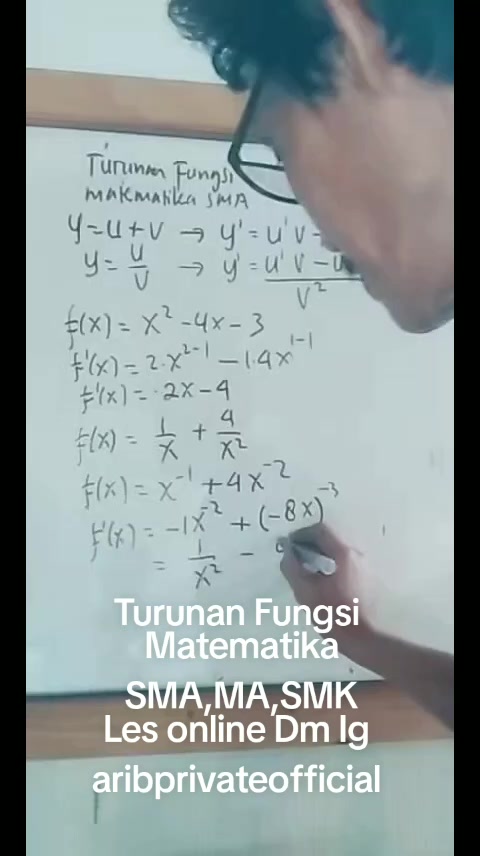 Turunan Fungsi
matematika SMA
y = u + v → y' = u'v -
y = u/v → y' = u'v - u / v²
f(x) = x² - 4x - 3
f'(x) = 2·x²⁻¹ - 1·4x¹⁻¹
f'(x) = 2x - 4
f(x) = 1/x + 4/x²
f(x) = x⁻¹ + 4x⁻²
f'(x) = -1x⁻² + (-8x)⁻³
= 1/x² -
Turunan Fungsi
Matematika
SMA,MA,SMK
Les online Dm Ig
aribprivateofficial